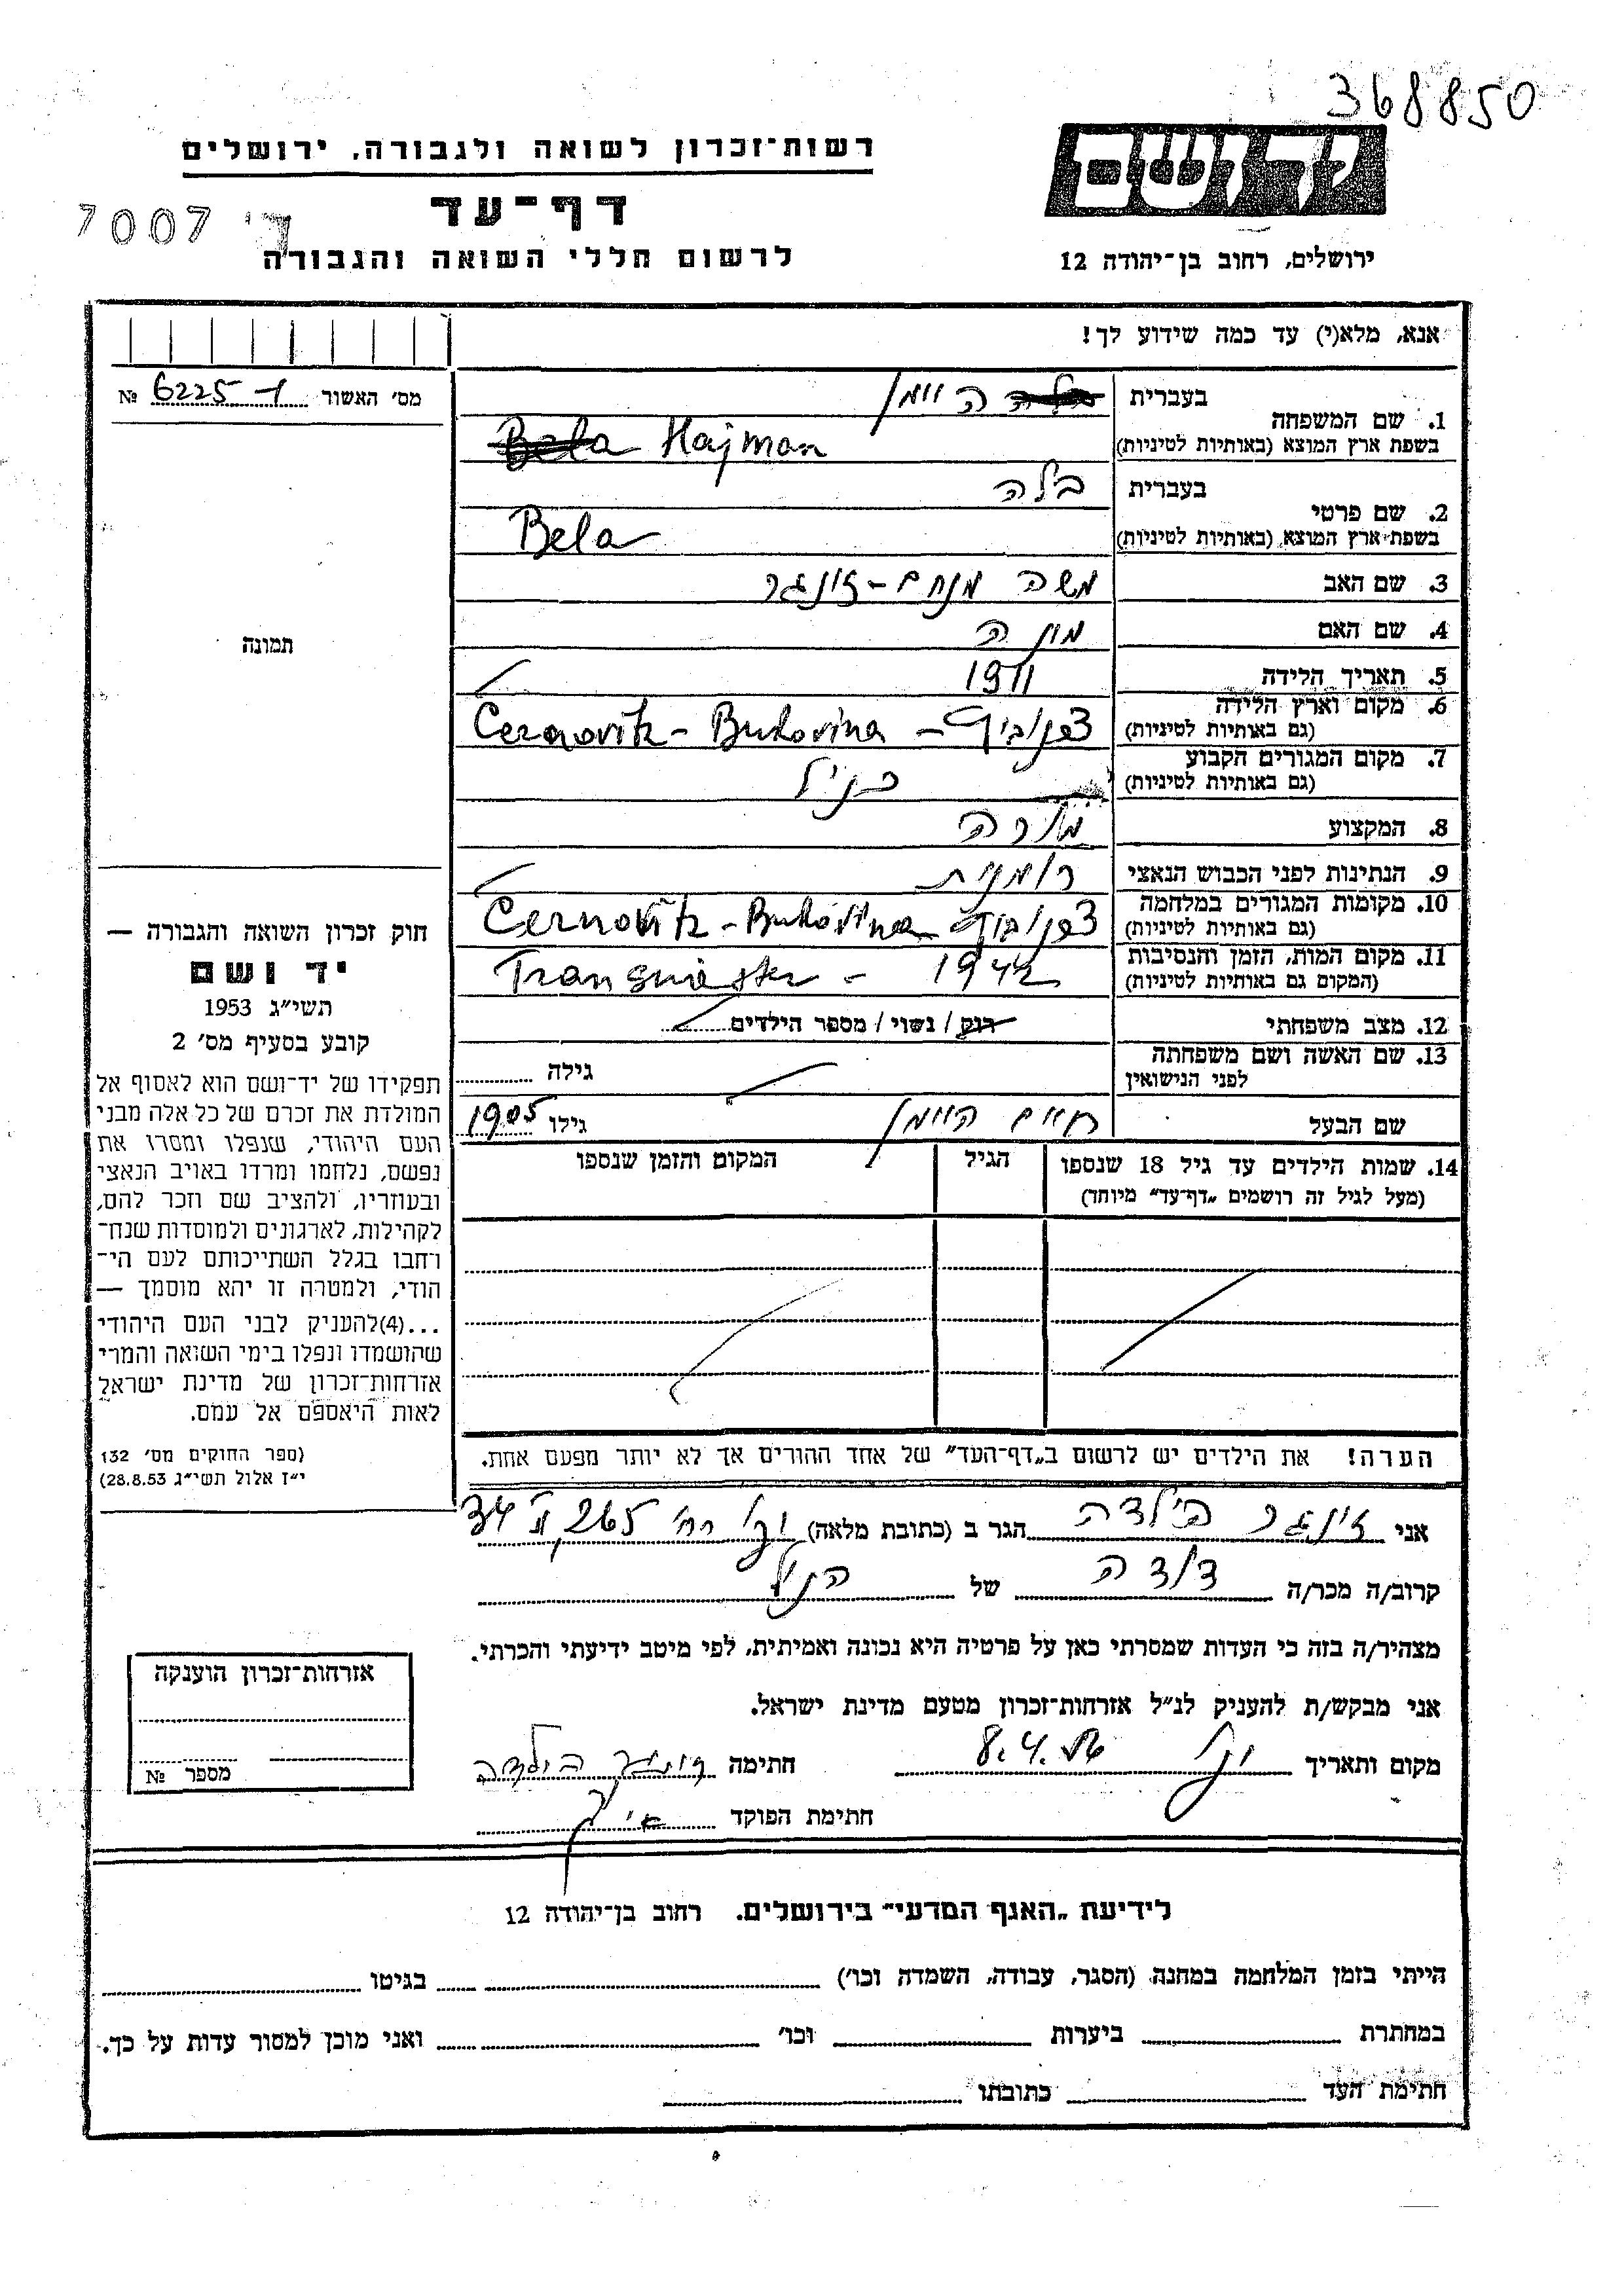 368850
יד ושם
רשות־זכרון לשואה ולגבורה, ירושלים
דף־עד
7007
לרשום חללי השואה והגבורה
ירושלים, רחוב בן־יהודה 12
אנא, מלא(י) עד כמה שידוע לך!
מס' האשור 6225 №
1. שם המשפחה
בעברית היימן
בשפת ארץ המוצא (באותיות לטיניות) Bela Hajman
2. שם פרטי
בעברית בלה
בשפת־ארץ המוצא (באותיות לטיניות) Bela
3. שם האב משה מנחם - זונגר
4. שם האם
5. תאריך הלידה 1911
6. מקום וארץ הלידה
(גם באותיות לטיניות) Cernovitz - Bukovina -
7. מקום המגורים הקבוע
(גם באותיות לטיניות) כנ"ל
8. המקצוע מורה
9. הנתינות לפני הכבוש הנאצי רומנית
10. מקומות המגורים במלחמה
(גם באותיות לטיניות) Cernovitz - Bukovina -
11. מקום המות, הזמן והנסיבות
(המקום גם באותיות לטיניות) Transniester - 1942
12. מצב משפחתי רוק / נשוי / מספר הילדים
13. שם האשה ושם משפחתה
לפני הנישואין
גילה
שם הבעל חיים היימן גילו 1905
14. שמות הילדים עד גיל 18 שנספו
(מעל לגיל זה רושמים „דף־עד” מיוחד)
הגיל
המקום והזמן שנספו
הערה! את הילדים יש לרשום ב„דף־העד” של אחד ההורים אך לא יותר מפעם אחת.
תמונה
חוק זכרון השואה והגבורה —
יד ושם
תשי״ג 1953
קובע בסעיף מס' 2
תפקידו של יד־ושם הוא לאסוף אל
המולדת את זכרם של כל אלה מבני
העם היהודי, שנפלו ומסרו את
נפשם, נלחמו ומרדו באויב הנאצי
ובעוזריו, ולהציב שם וזכר להם,
לקהילות, לארגונים ולמוסדות שנח־
רחבו בגלל השתייכותם לעם הי־
הודי, ולמטרה זו יהא מוסמך —
...(4)להעניק לבני העם היהודי
שהושמדו ונפלו בימי השואה והמרי
אזרחות־זכרון של מדינת ישראל
לאות היאספם אל עמם.
(ספר החוקים מס' 132
י״ז אלול תשי״ג 28.8.53)
אני זונגר הילדה הגר ב (כתובת מלאה) רח' 265
קרוב/ה מכר/ה דודה של הנ"ל
מצהיר/ה בזה כי העדות שמסרתי כאן על פרטיה היא נכונה ואמיתית, לפי מיטב ידיעתי והכרתי.
אני מבקש/ת להעניק לנ״ל אזרחות־זכרון מטעם מדינת ישראל.
מקום ותאריך 8.4.56 חתימה זונגר הילדה
חתימת הפוקד
אזרחות־זכרון הוענקה
מספר №
לידיעת „האגף המדעי” בירושלים. רחוב בן־יהודה 12
הייתי בזמן המלחמה במחנה (הסגר, עבודה, השמדה וכו') בגיטו
במחתרת ביערות וכו' ואני מוכן למסור עדות על כך.
חתימת העד כתובתו